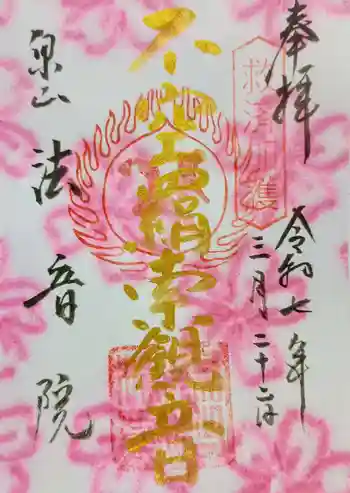 奉拝
令和七年
三月二十二日
救済加護
不空羂索観音
泉山
法音院